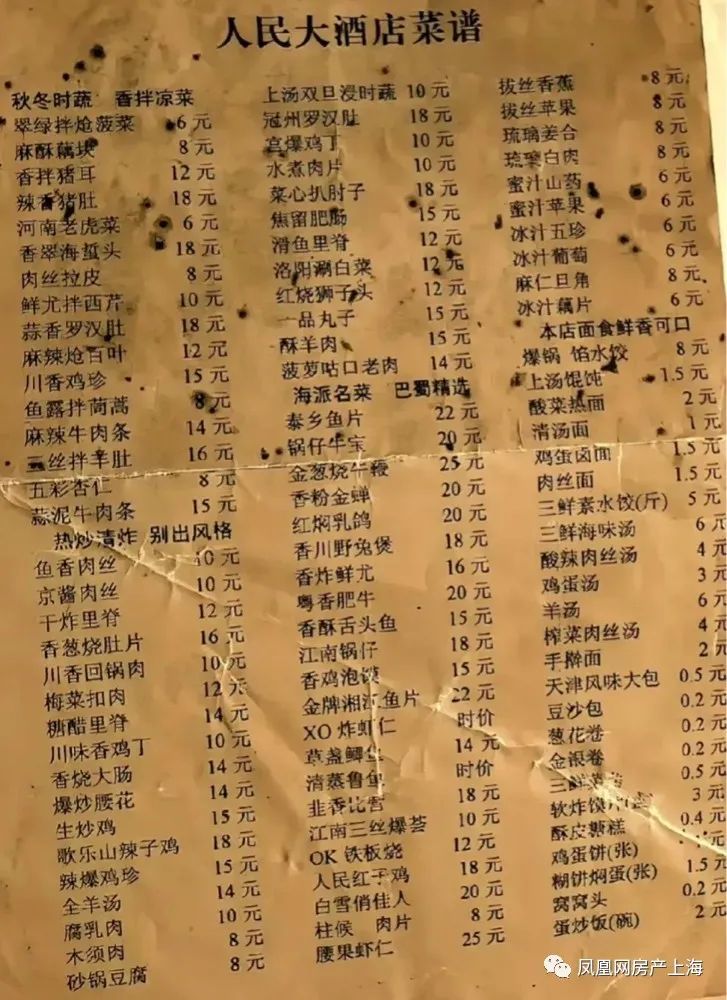 人民大酒店菜谱
秋冬时蔬 香拌凉菜
翠绿拌炝菠菜 6元
麻酥藕块 8元
香拌猪耳 12元
辣香猪肚 18元
河南老虎菜 6元
香翠海蜇头 18元
肉丝拉皮 8元
鲜尤拌西芹 10元
蒜香罗汉肚 18元
麻辣炝百叶 12元
川香鸡珍 15元
鱼露拌茼蒿 8元
麻辣牛肉条 14元
三丝拌羊肚 16元
五彩杏仁 8元
蒜泥牛肉条 15元
热炒清炸 别出风格
鱼香肉丝 10元
京酱肉丝 10元
干炸里脊 12元
香葱烧肚片 16元
川香回锅肉 10元
梅菜扣肉 12元
糖醋里脊 14元
川味香鸡丁 10元
香烧大肠 14元
爆炒腰花 14元
生炒鸡 15元
歌乐山辣子鸡 18元
辣爆鸡珍 15元
全羊汤 14元
腐乳肉 10元
木须肉 8元
砂锅豆腐 8元
上汤双旦浸时蔬 10元
冠州罗汉肚 18元
宫爆鸡丁 10元
水煮肉片 10元
菜心扒肘子 18元
焦留肥肠 15元
滑鱼里脊 12元
洛阳涮白菜 12元
红烧狮子头 12元
一品丸子 15元
酥羊肉 15元
菠萝咕口老肉 14元
海派名菜 巴蜀精选
泰乡鱼片 22元
锅仔牛宝 20元
金葱烧牛鞭 25元
香粉金蝉 20元
红焖乳鸽 20元
香川野兔煲 18元
香炸鲜尤 16元
粤香肥牛 20元
香酥舌头鱼 15元
江南锅仔 18元
香鸡泡馍 15元
金牌湘江鱼片 22元
XO炸虾仁 时价
草盏鲫鱼 14元
清蒸鲁鱼 时价
韭香比管 18元
江南三丝爆荟 10元
OK铁板烧 12元
人民红干鸡 18元
白雪俏佳人 20元
柱候 肉片 8元
腰果虾仁 25元
拔丝香蕉 8元
拔丝苹果 8元
琉璃姜合 8元
琉璃白肉 8元
蜜汁山药 6元
蜜汁苹果 8元
冰汁五珍 6元
冰汁葡萄 6元
麻仁旦角 8元
冰汁藕片 6元
本店面食鲜香可口
爆锅 馅水饺 8元
上汤馄饨 1.5元
酸菜热面 2元
清汤面 1元
鸡蛋卤面 1.5元
肉丝面 1.5元
三鲜素水饺(斤) 5元
三鲜海味汤 6元
酸辣肉丝汤 4元
鸡蛋汤 3元
羊汤 6元
榨菜肉丝汤 4元
手擀面 2元
天津风味大包 0.5元
豆沙包 0.2元
葱花卷 0.2元
金银卷 0.2元
三鲜 0.5元
软炸馍片 3元
酥皮糖糕 0.4元
鸡蛋饼(张) 元
糊饼焖蛋(张) 1.5元
窝窝头 0.2元
蛋炒饭(碗) 2元
凤凰网房产上海